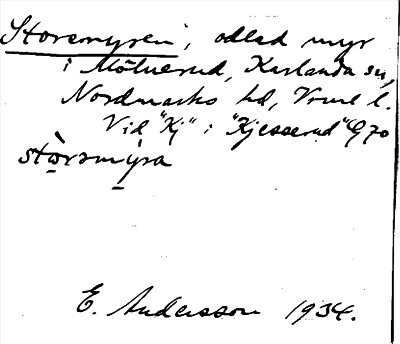 Storemyren, odlad myr
i Mölnerud, Karlanda sn,
Nordmarks hd, Vrml l.
Vid "Kj" i "Kjesserud" G70
stòrəmỳra
E. Andersson 1934.